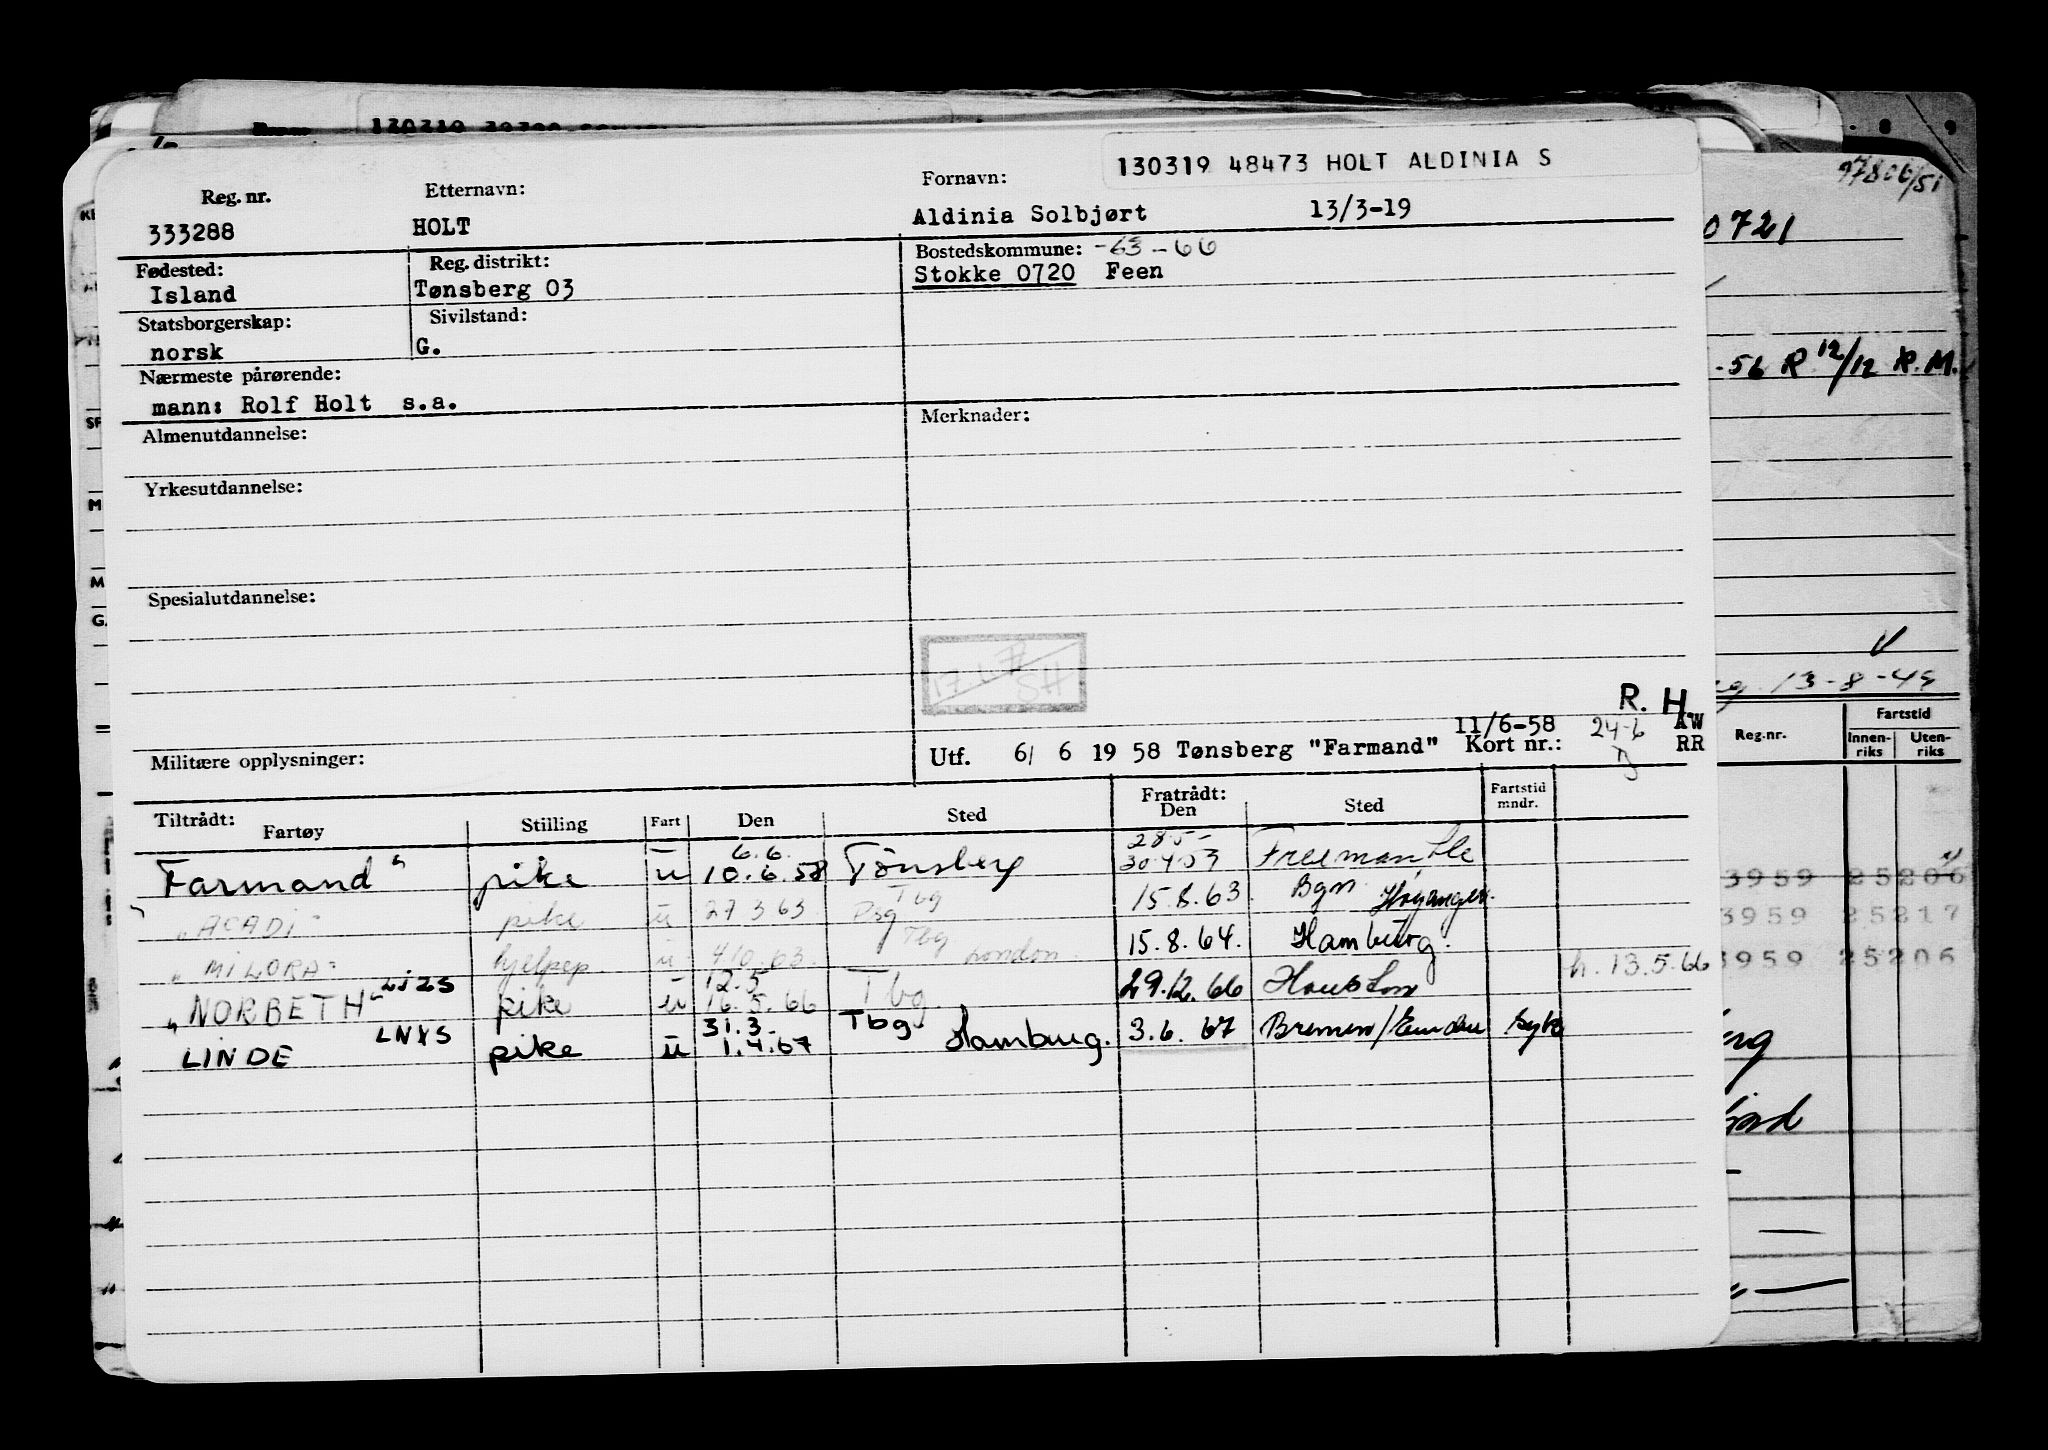 130319 48473 HOLT ALDINIA S
Reg. nr. Etternavn: Fornavn:
333288 HOLT Aldinia Solbjørt 13/3-19
Fødested: Reg. distrikt: Bostedskommune: -63-66
Island Tønsberg 03 Stokke 0720 Feen
Statsborgerskap: Sivilstand:
norsk G.
Nærmeste pårørende:
mann: Rolf Holt s.a.
Almenutdannelse: Merknader:
Yrkesutdannelse:
Spesialutdannelse:
SH
R. H.
11/6-58 24-6 AW
Militære opplysninger: Utf. 6/ 6 19 58 Tønsberg "Farmand" Kort nr.: RR
Tiltrådt: Fratrådt:
Fartøy Stilling Fart Den Sted Den Sted Fartstid mndr.
6.6. 28.5-
Farmand" pike u 10.6.58 Tønsberg 30.4.59 Freemantle
Tbg
"ACADI" pike u 27 3 63 15.8.63 Bgn Høyanger.
Tbg
"MILORA" hjelpep. u 4 10.63. London. 15.8.64. Hamburg.
LJZS 12.5 h. 13.5.66
"NORBETH" pike u 16.5.66 Tbg 29.12.66 Houston
LNXS 31.3- Tbg
LINDE pike u 1.4.67 Hamburg. 3.6.67 Bremen/Emden syk
97806/51
0721
-56 R 12/12 R.M.
13-8-49
Reg.nr. Fartstid
Innen-riks Uten-riks
3959 25206
3959 25217
3959 25206